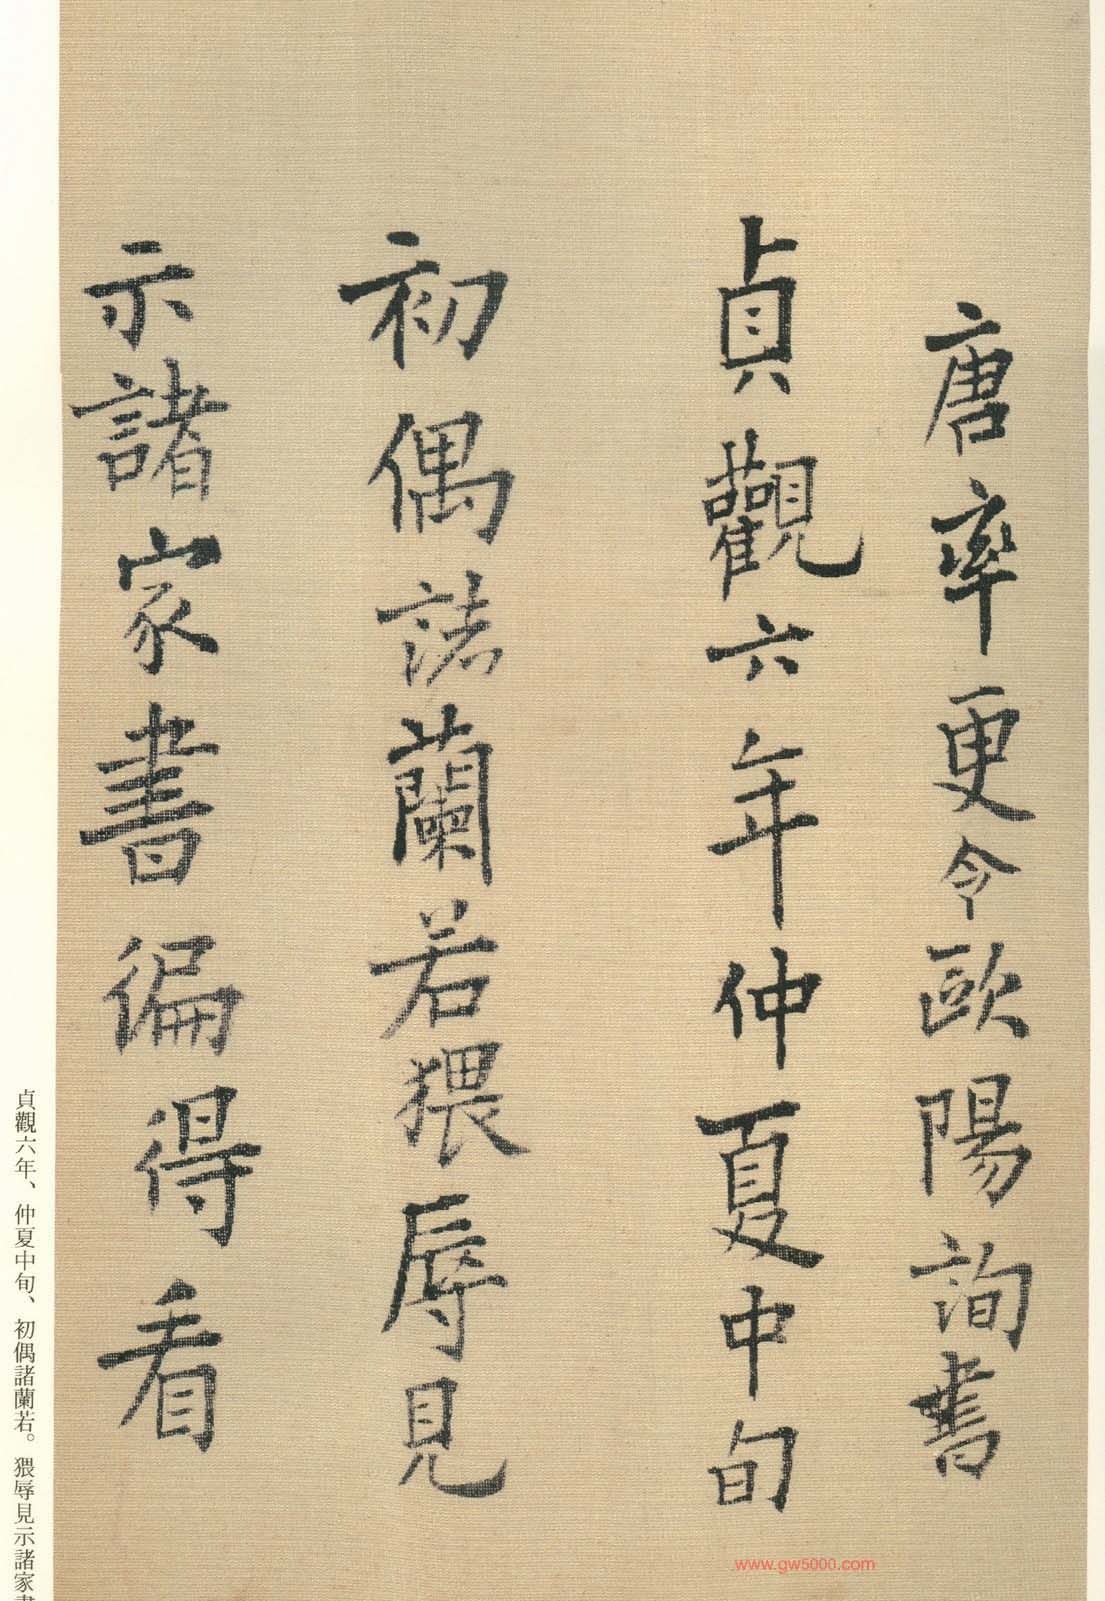 唐率更令歐陽詢書
貞觀六年仲夏中旬
初偶誌蘭若猥辱見
示諸家書徧得看
貞觀六年、仲夏中旬、初偶諸蘭若。猥辱見示諸家書
www.gw5000.com